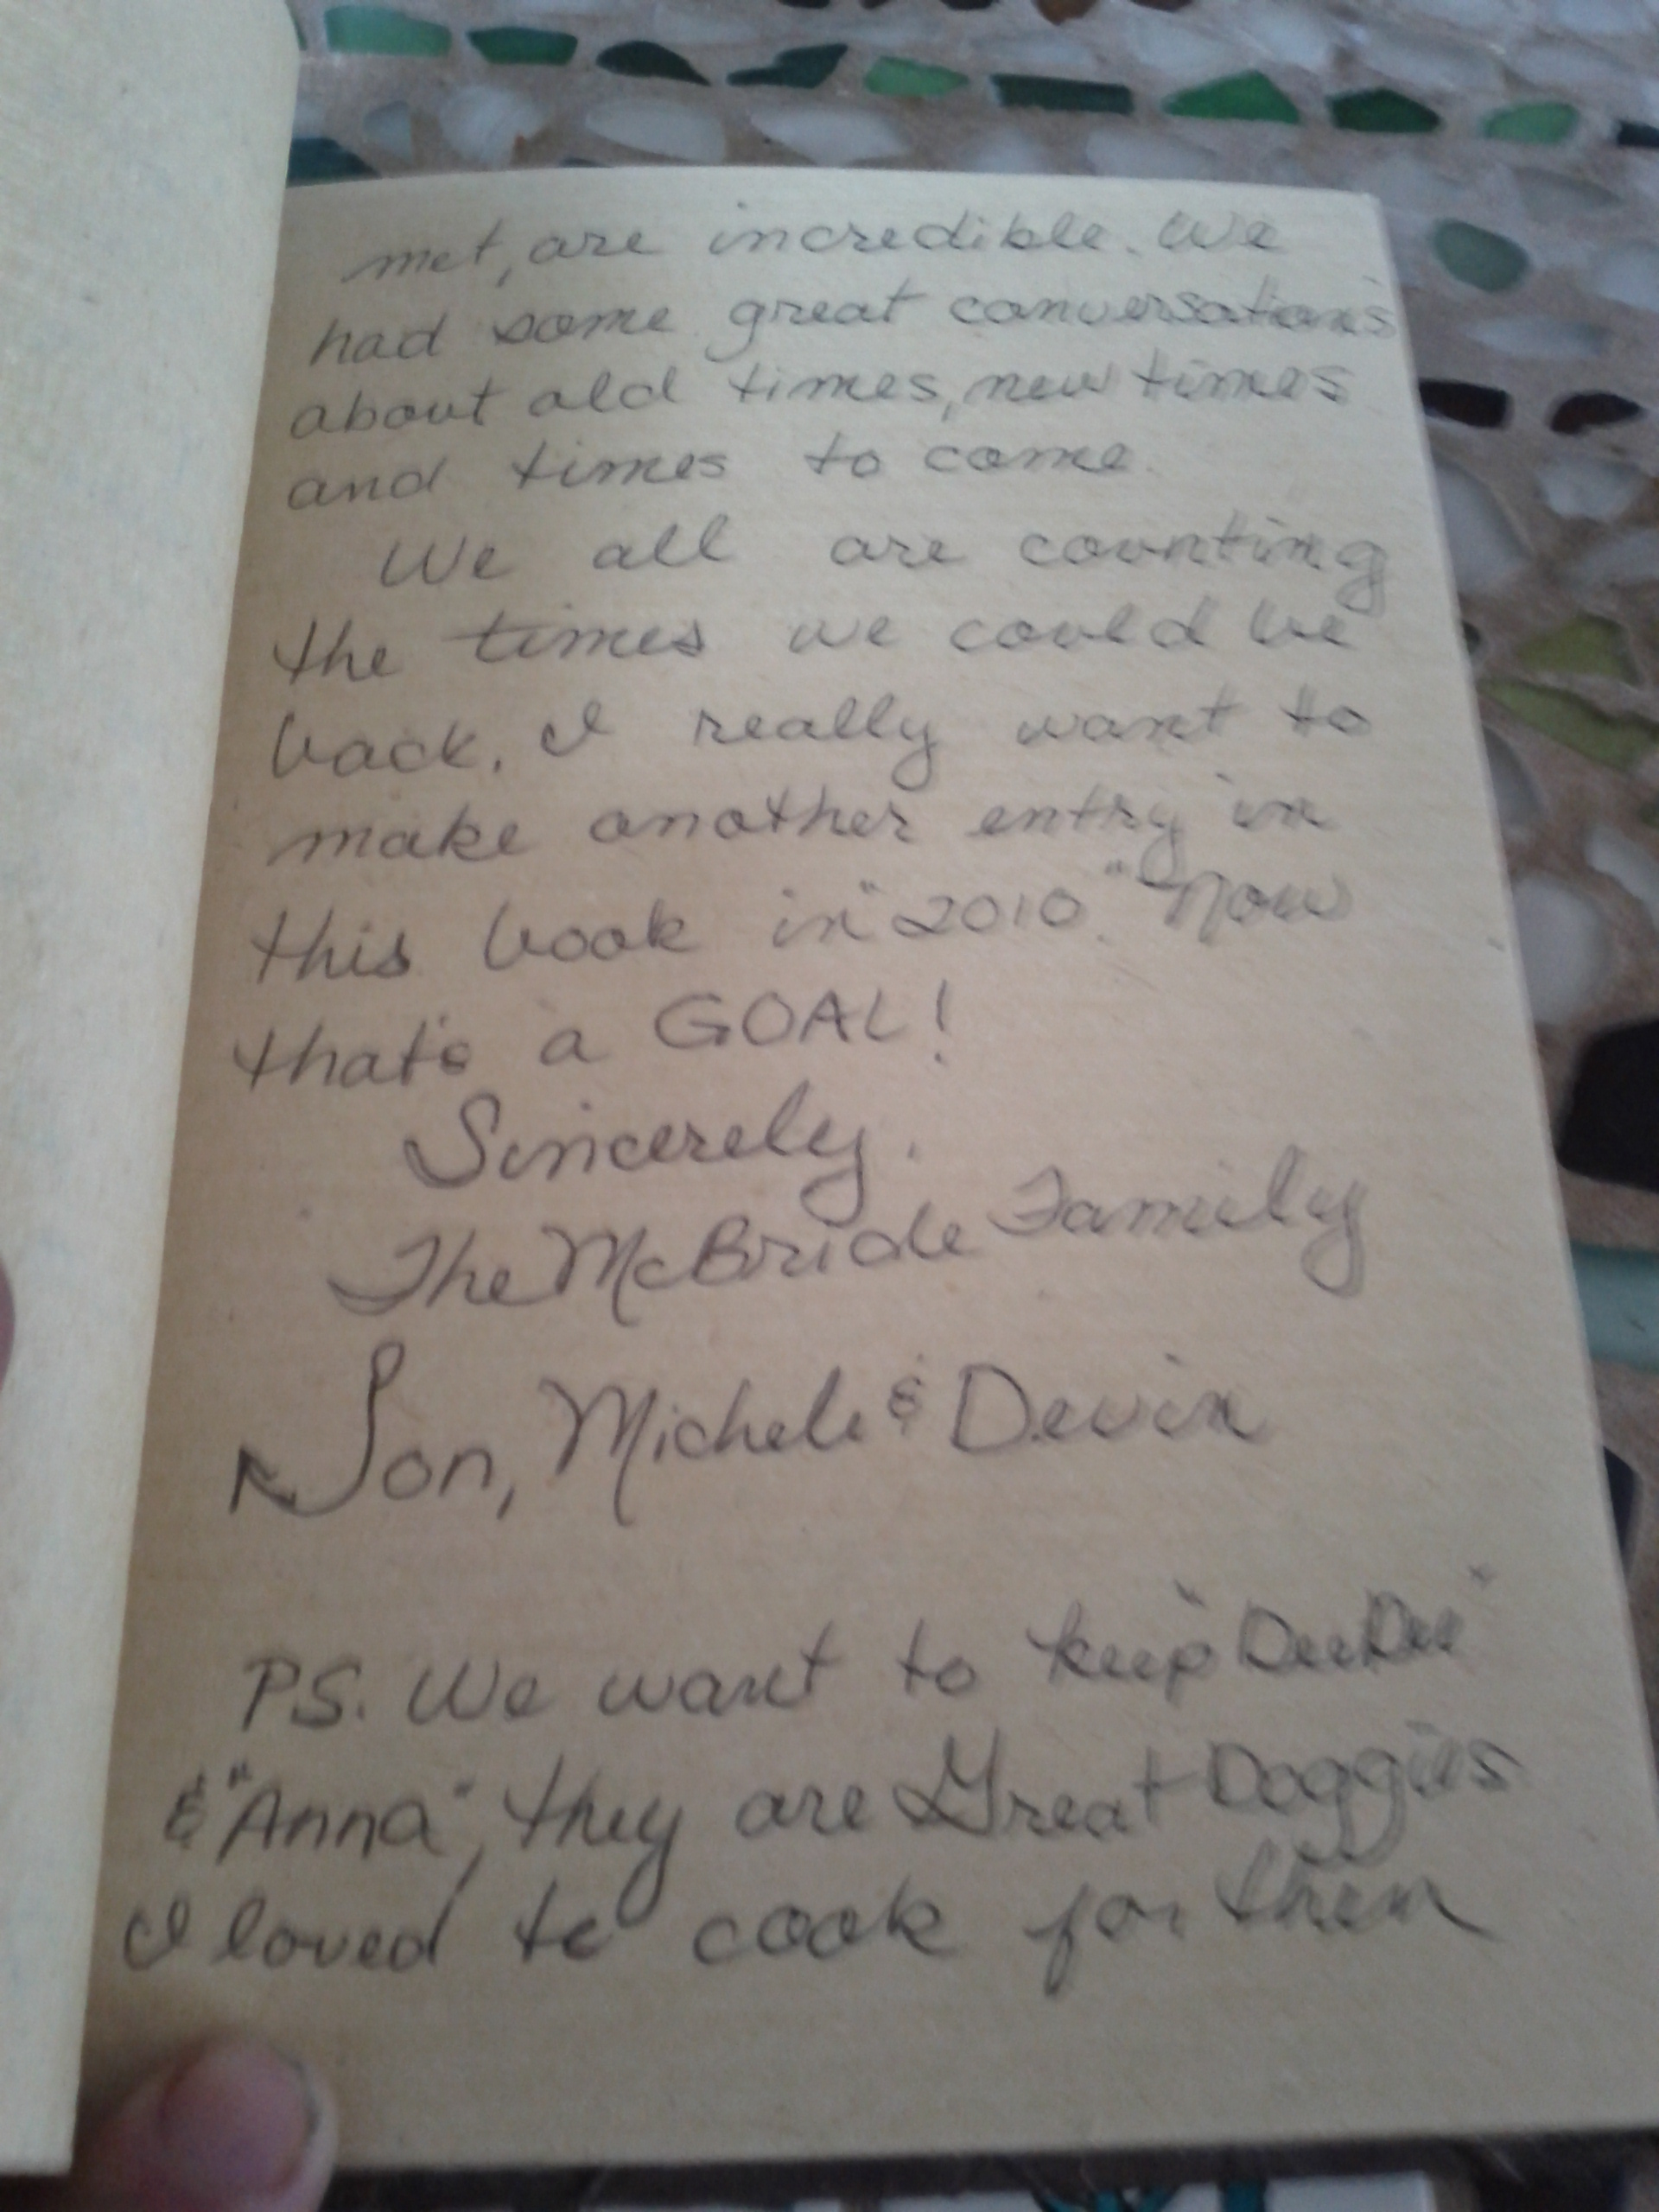 met, are incredible. We
had some great conversations
about old times, new times
and times to come.
We all are counting
the times we could be
back. I really want to
make another entry in
this book in "2010." Now
that's a GOAL!
Sincerely,
The McBride Family
Jon, Michele & Devin
PS. We want to keep "DeeDee"
& "Anna", they are Great Doggies
I loved to cook for them